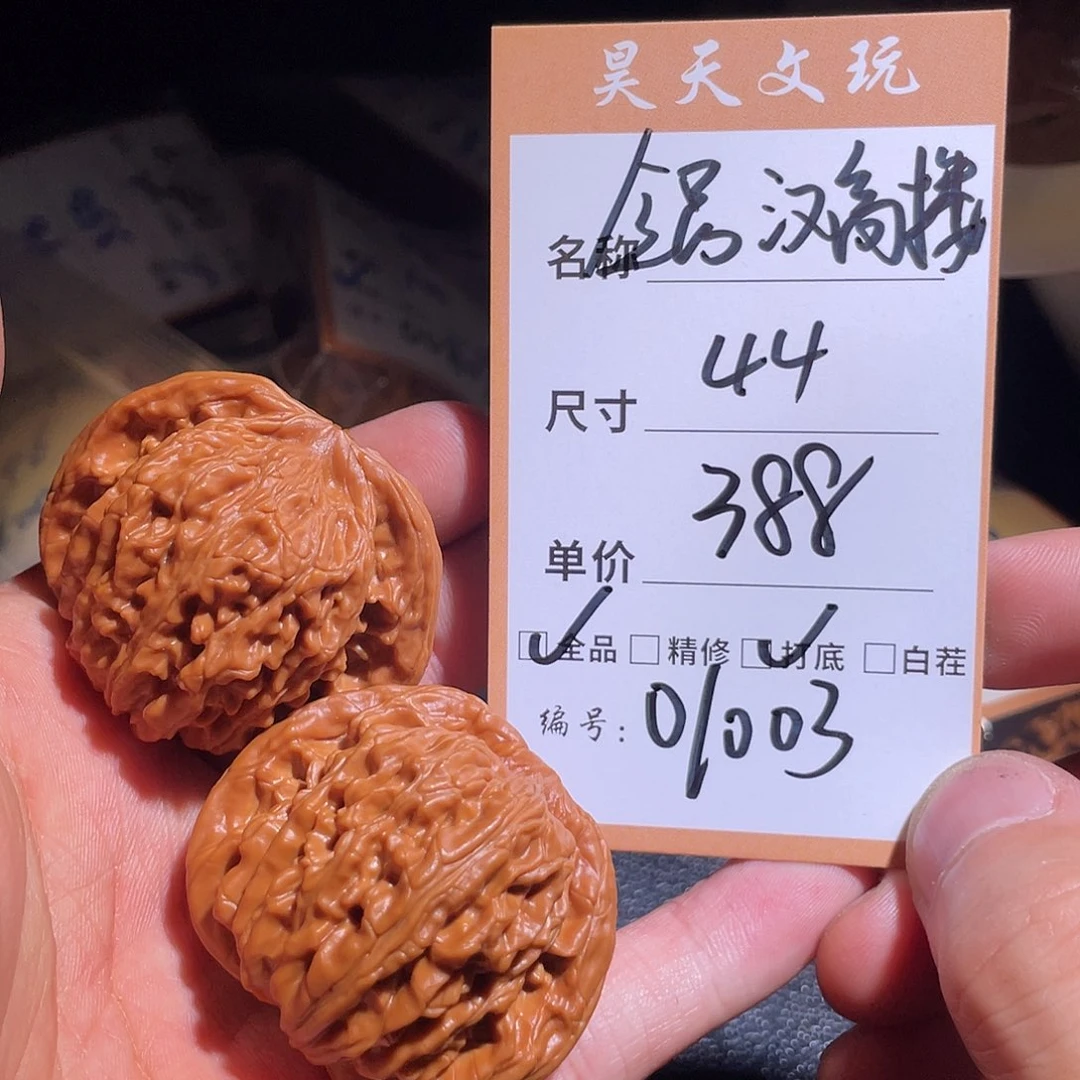 昊天文玩
名称 汉高楼
尺寸 44
单价 388
☑全品 □精修 ☑打底 □白茬
编号: 01003